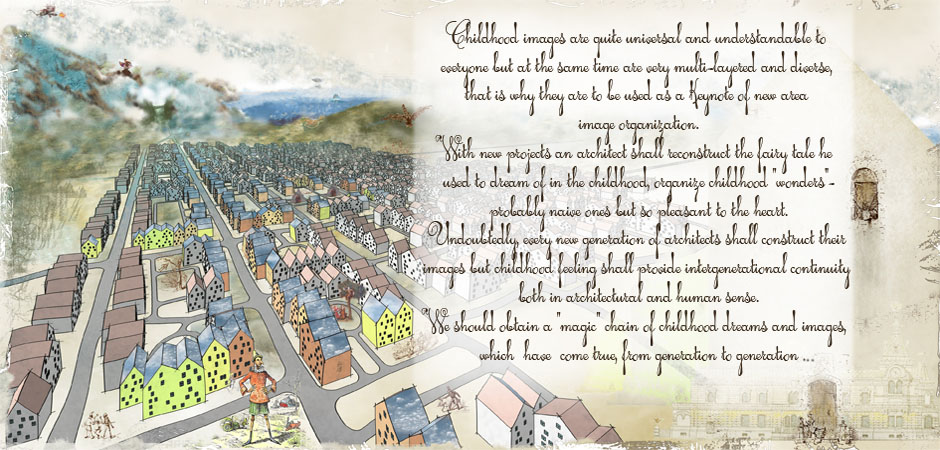 Childhood images are quite universal and understandable to
everyone but at the same time are very multi-layered and diverse,
that is why they are to be used as a Keynote of new area
image organization.
With new projects an architect shall reconstruct the fairy tale he
used to dream of in the childhood, organize childhood "wonders"-
probably naive ones but so pleasant to the heart.
Undoubtedly, every new generation of architects shall construct their
images but childhood feeling shall provide intergenerational continuity
both in architectural and human sense.
We should obtain a "magic" chain of childhood dreams and images,
which have come true, from generation to generation ...